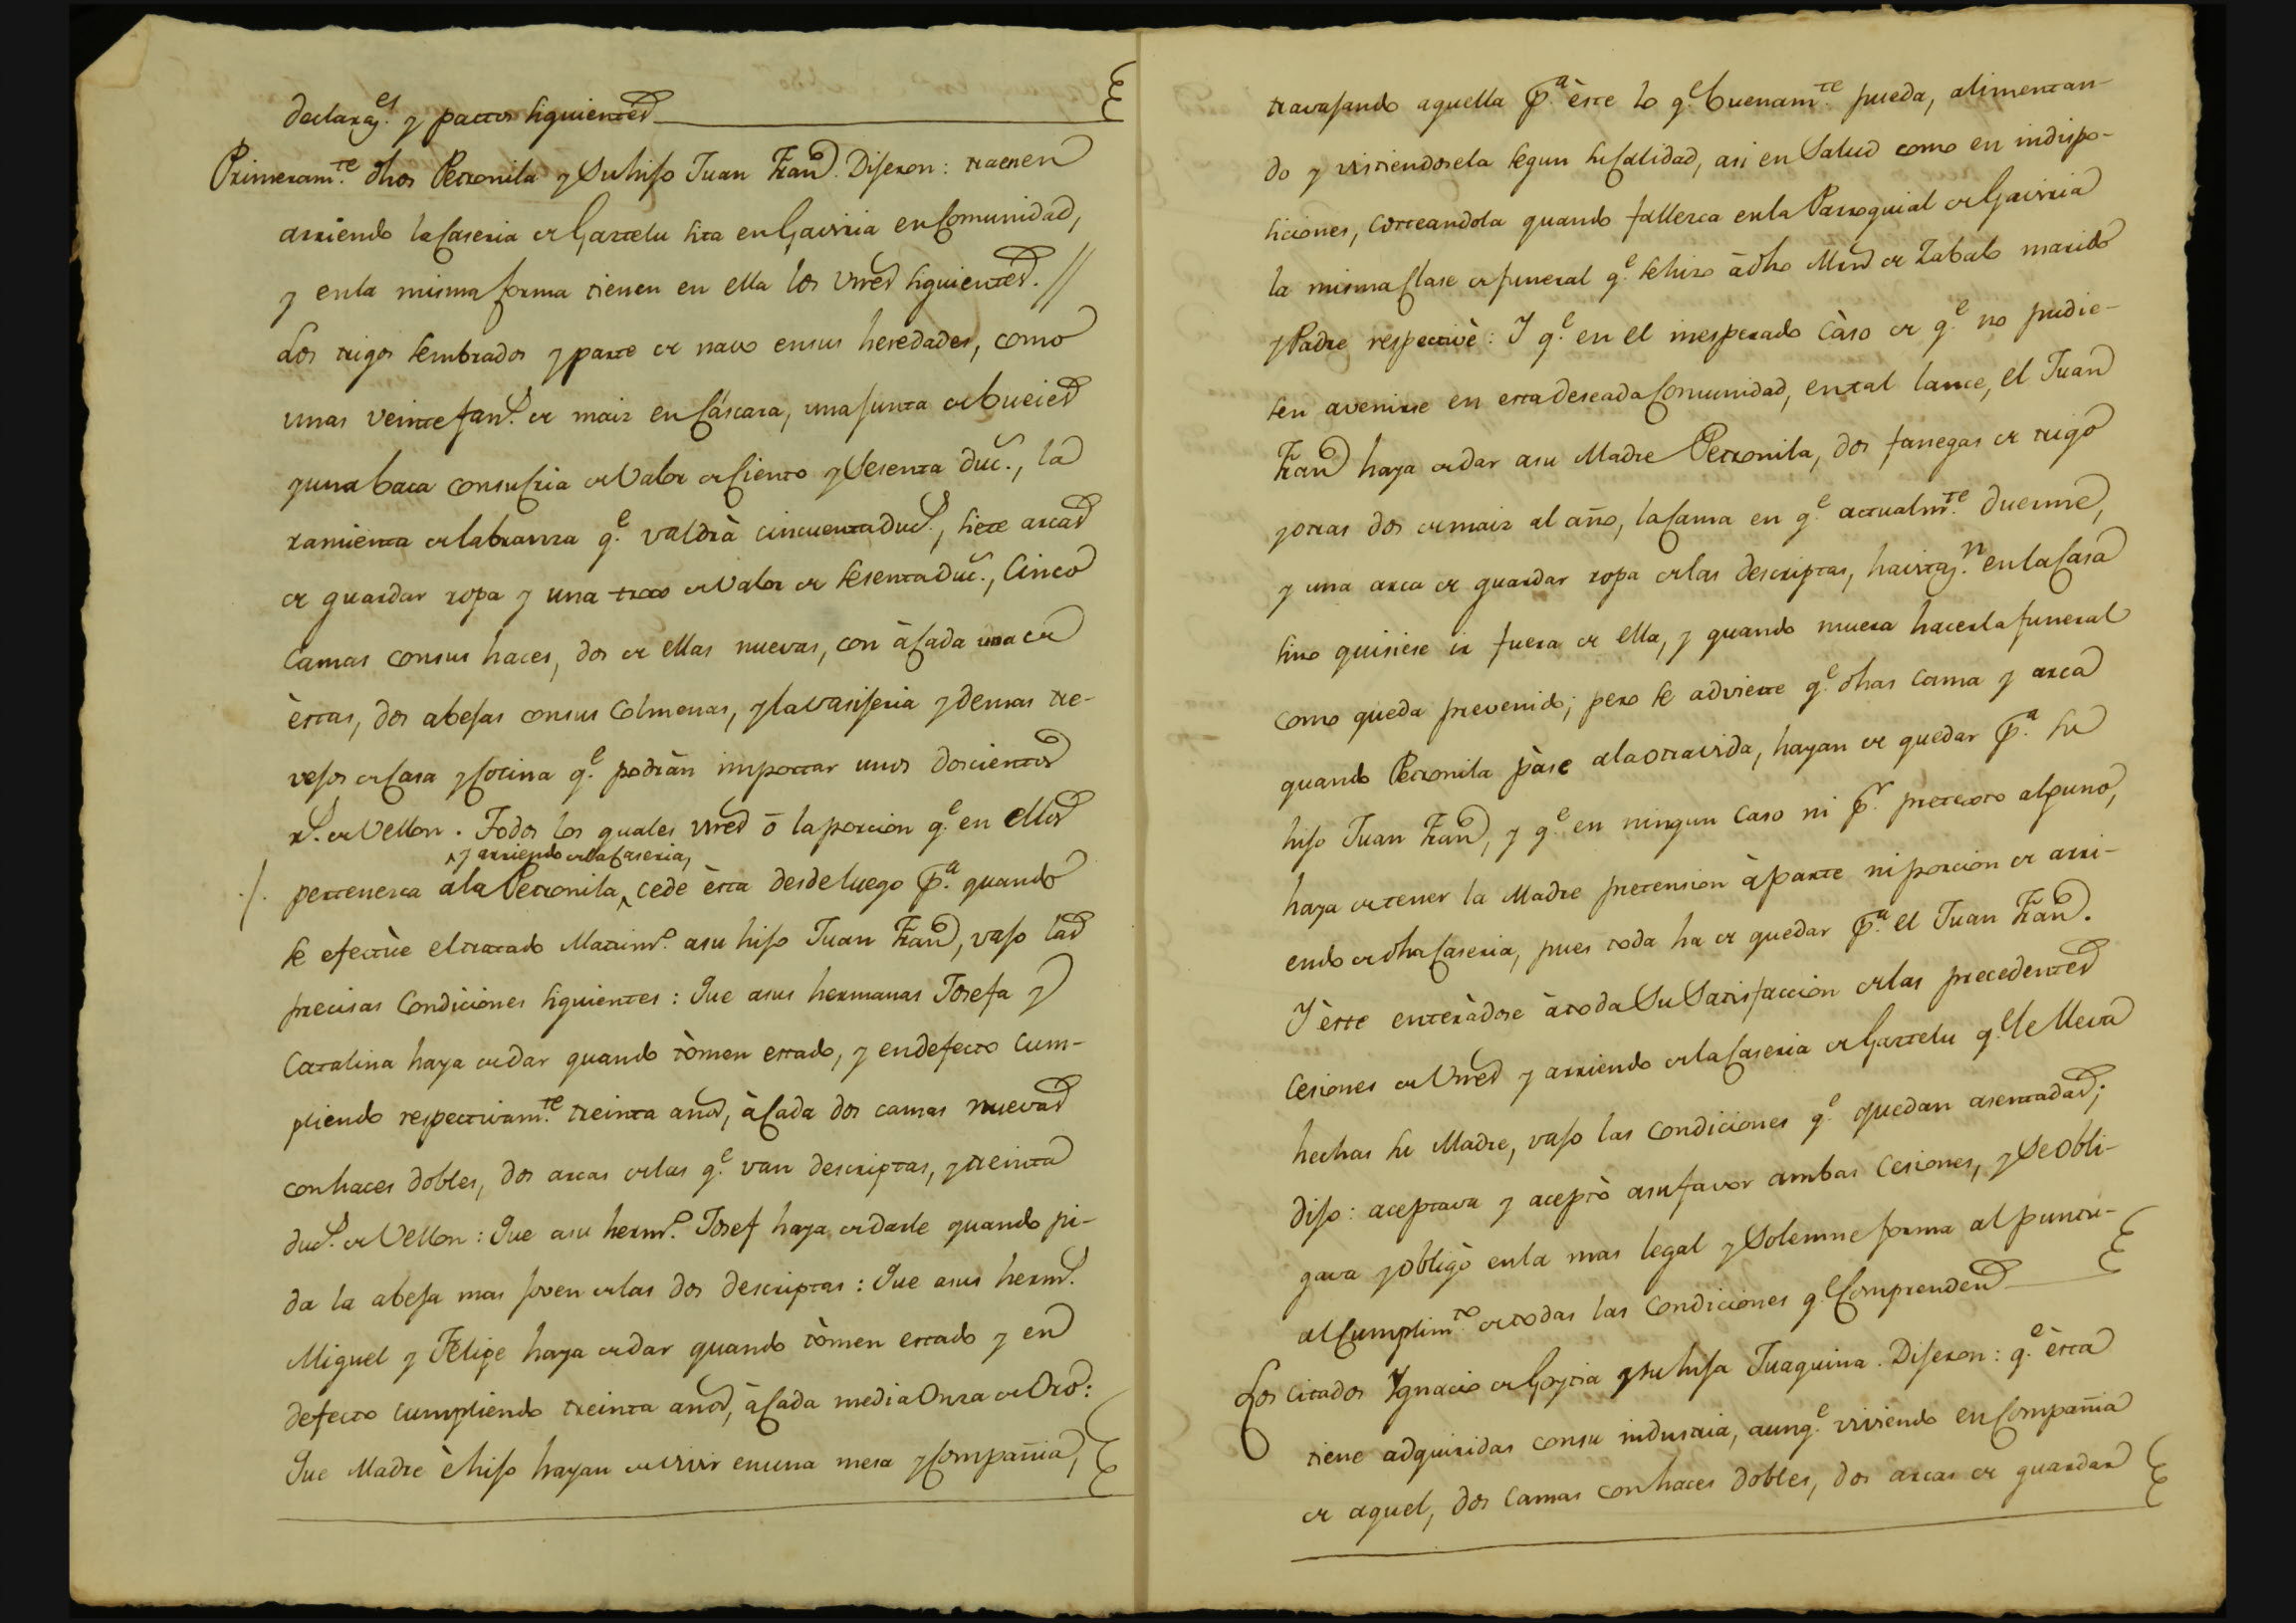 declarac.es y pactos siguientes
Primeram.te dhos Petronila y su hijo Juan Fran.co Dijeron: traen en
arriendo la Caseria de Gartelu sita en Gaviria en Comunidad,
y en la misma forma tienen en ella los vnes siguientes. //
Los trigos sembrados y parte de navo en sus heredades, como
unas veinte fan.s de maiz en Cáscara, una junta de bueies
y una baca con su cria de Valor de Ciento y Sesenta duc.s, la
ramienta de labranza q.e valdrà cincuenta duc.s, siete arcas
de guardar ropa y una de Valor de sesenta duc.s, Cinco
Camas con sus haces, dos de ellas nuevas, con à Cada una de
èstas, dos abejas con sus Colmenas, y la vasijeria y demas tre-
vejos de Casa y Cocina q.e podràn importar unos doscientos
r.s de Vellon. Todos los quales vnes ò la porcion q.e en ellos
^ y arriendo de la Caseria,
./. pertenezca a la Petronila ^ cede èsta desde luego p.a quando
se efectùe el tratado Matrim.o a su hijo Juan Fran.co, vajo las
precisas Condiciones siguientes: Que a sus hermanas Josefa y
Catalina haya de dar quando tòmen estado, y en defecto Cum-
pliendo respectivam.te treinta años, à Cada dos camas nuevas
con haces dobles, dos arcas de las q.e van descriptas, y treinta
duc.s de Vellon: Que a su herm.o Josef haya de darle quando pi-
da la abeja mas joven de las dos descriptas: Que a sus herm.s
Miguel y Felipe haya de dar quando tòmen estado y en
defecto cumpliendo treinta años, à Cada media Onza de Oro:
Que Madre è hijo hayan de vivir en una mesa y Compañia,
travajando aquella p.a èste lo q.e buenam.te pueda, alimentan-
do y vistiendosela segun su Calidad, asi en Salud como en indispo-
siciones, Costeandola quando fallesca en la Parroquial de Gaviria
la misma Clase de funeral q.e se hizo à dho Mrn de Zabalo marido
y Padre respectivè: Y q.e en el inesperado Càso de q.e no pudie-
sen avenirse en esta deseada Comunidad, en tal lance, el Juan
Fran.co haya de dar a su Madre Petronila, dos fanegas de trigo
y otras dos de maiz al año, la Cama en q.e actualm.te duerme,
y una arca de guardar ropa de las descriptas, havitac.n en la Casa
sino quisiese ir fuera de ella, y quando muera hacerla funeral
como queda prevenido; pero se advierte q.e dhas Cama y arca
quando Petronila pàse a la otra vida, hayan de quedar p.a su
hijo Juan Fran.co, y q.e en ningun Caso ni p.r pretexto alguno,
haya de tener la Madre pretension à parte ni porcion de arri-
endo de dha Caseria, pues toda ha de quedar p.a el Juan Fran.co.
Y èste enteràdose à toda Su Satisfaccion de las precedentes
Cesiones de Vnes y arriendo de la Caseria de Gartelu q.e le lleva
hechas su Madre, vajo las condiciones q.e quedan asentadas;
dijo: aceptava y aceptò a su favor ambas Cesiones, y Se obli-
gava y obligò en la mas legal y Solemne forma al puntu-
al Cumplim.to de todas las Condiciones q.e Comprenden
Los citados Ygnacio de Goytia y su hija Juaquina. Dijeron: q.e èsta
tiene adquiridas con su industria, aunq.e viviendo en Compañia
de aquel, dos Camas con haces dobles, dos arcas de guardar